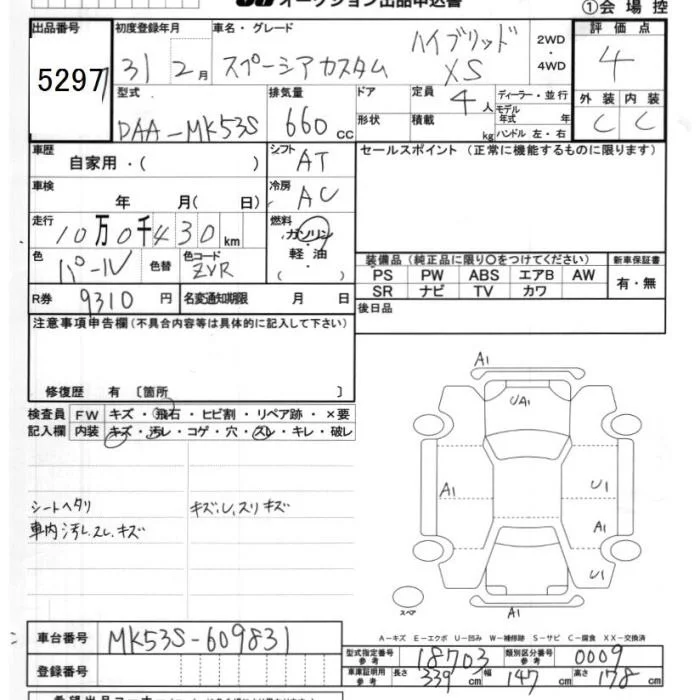 オークション出品申込書
①会場控
出品番号 初度登録年月 車名・グレード 評価点
5297 31 2月 スペーシアカスタム ハイブリッド XS 2WD・4WD 4
型式 排気量 ドア 定員 4人 ディーラー・並行 外装 内装
DAA-MK53S 660cc 形状 積載 kg モデル年式 年 ハンドル 左・右 C C
車歴 自家用・( ) シフト AT セールスポイント(正常に機能するものに限ります)
車検 年 月( 日) 冷房 AC
走行 10万0千430km 燃料 ガソリン 軽油 ( ・ )
色 パール 色替 色コード ZVR 装備品(純正品に限り○をつけてください) 新車保証書
PS PW ABS エアB AW 有・無
SR ナビ TV カワ
R券 9310円 名変通知期限 月 日 後日品
注意事項申告欄(不具合内容等は具体的に記入して下さい)
修復歴 有 〔箇所 〕
検査員 FW キズ・飛石・ヒビ割・リペア跡・×要
記入欄 内装 キズ・汚レ・コゲ・穴・スレ・キレ・破レ
シートヘタリ キズ、U、スリキズ
車内汚レ、スレ、キズ
A1
UA1
A1 U1
A1
U1
スペア A1
A-キズ E-エクボ U-凹み W-補修跡 S-サビ C-腐食 XX-交換済
車台番号 MK53S-609831
型式指定番号 参考 18703 類別区分番号 参考 0009
登録番号 車庫証明用 参考 長さ 339cm 幅 147cm 高さ 178cm